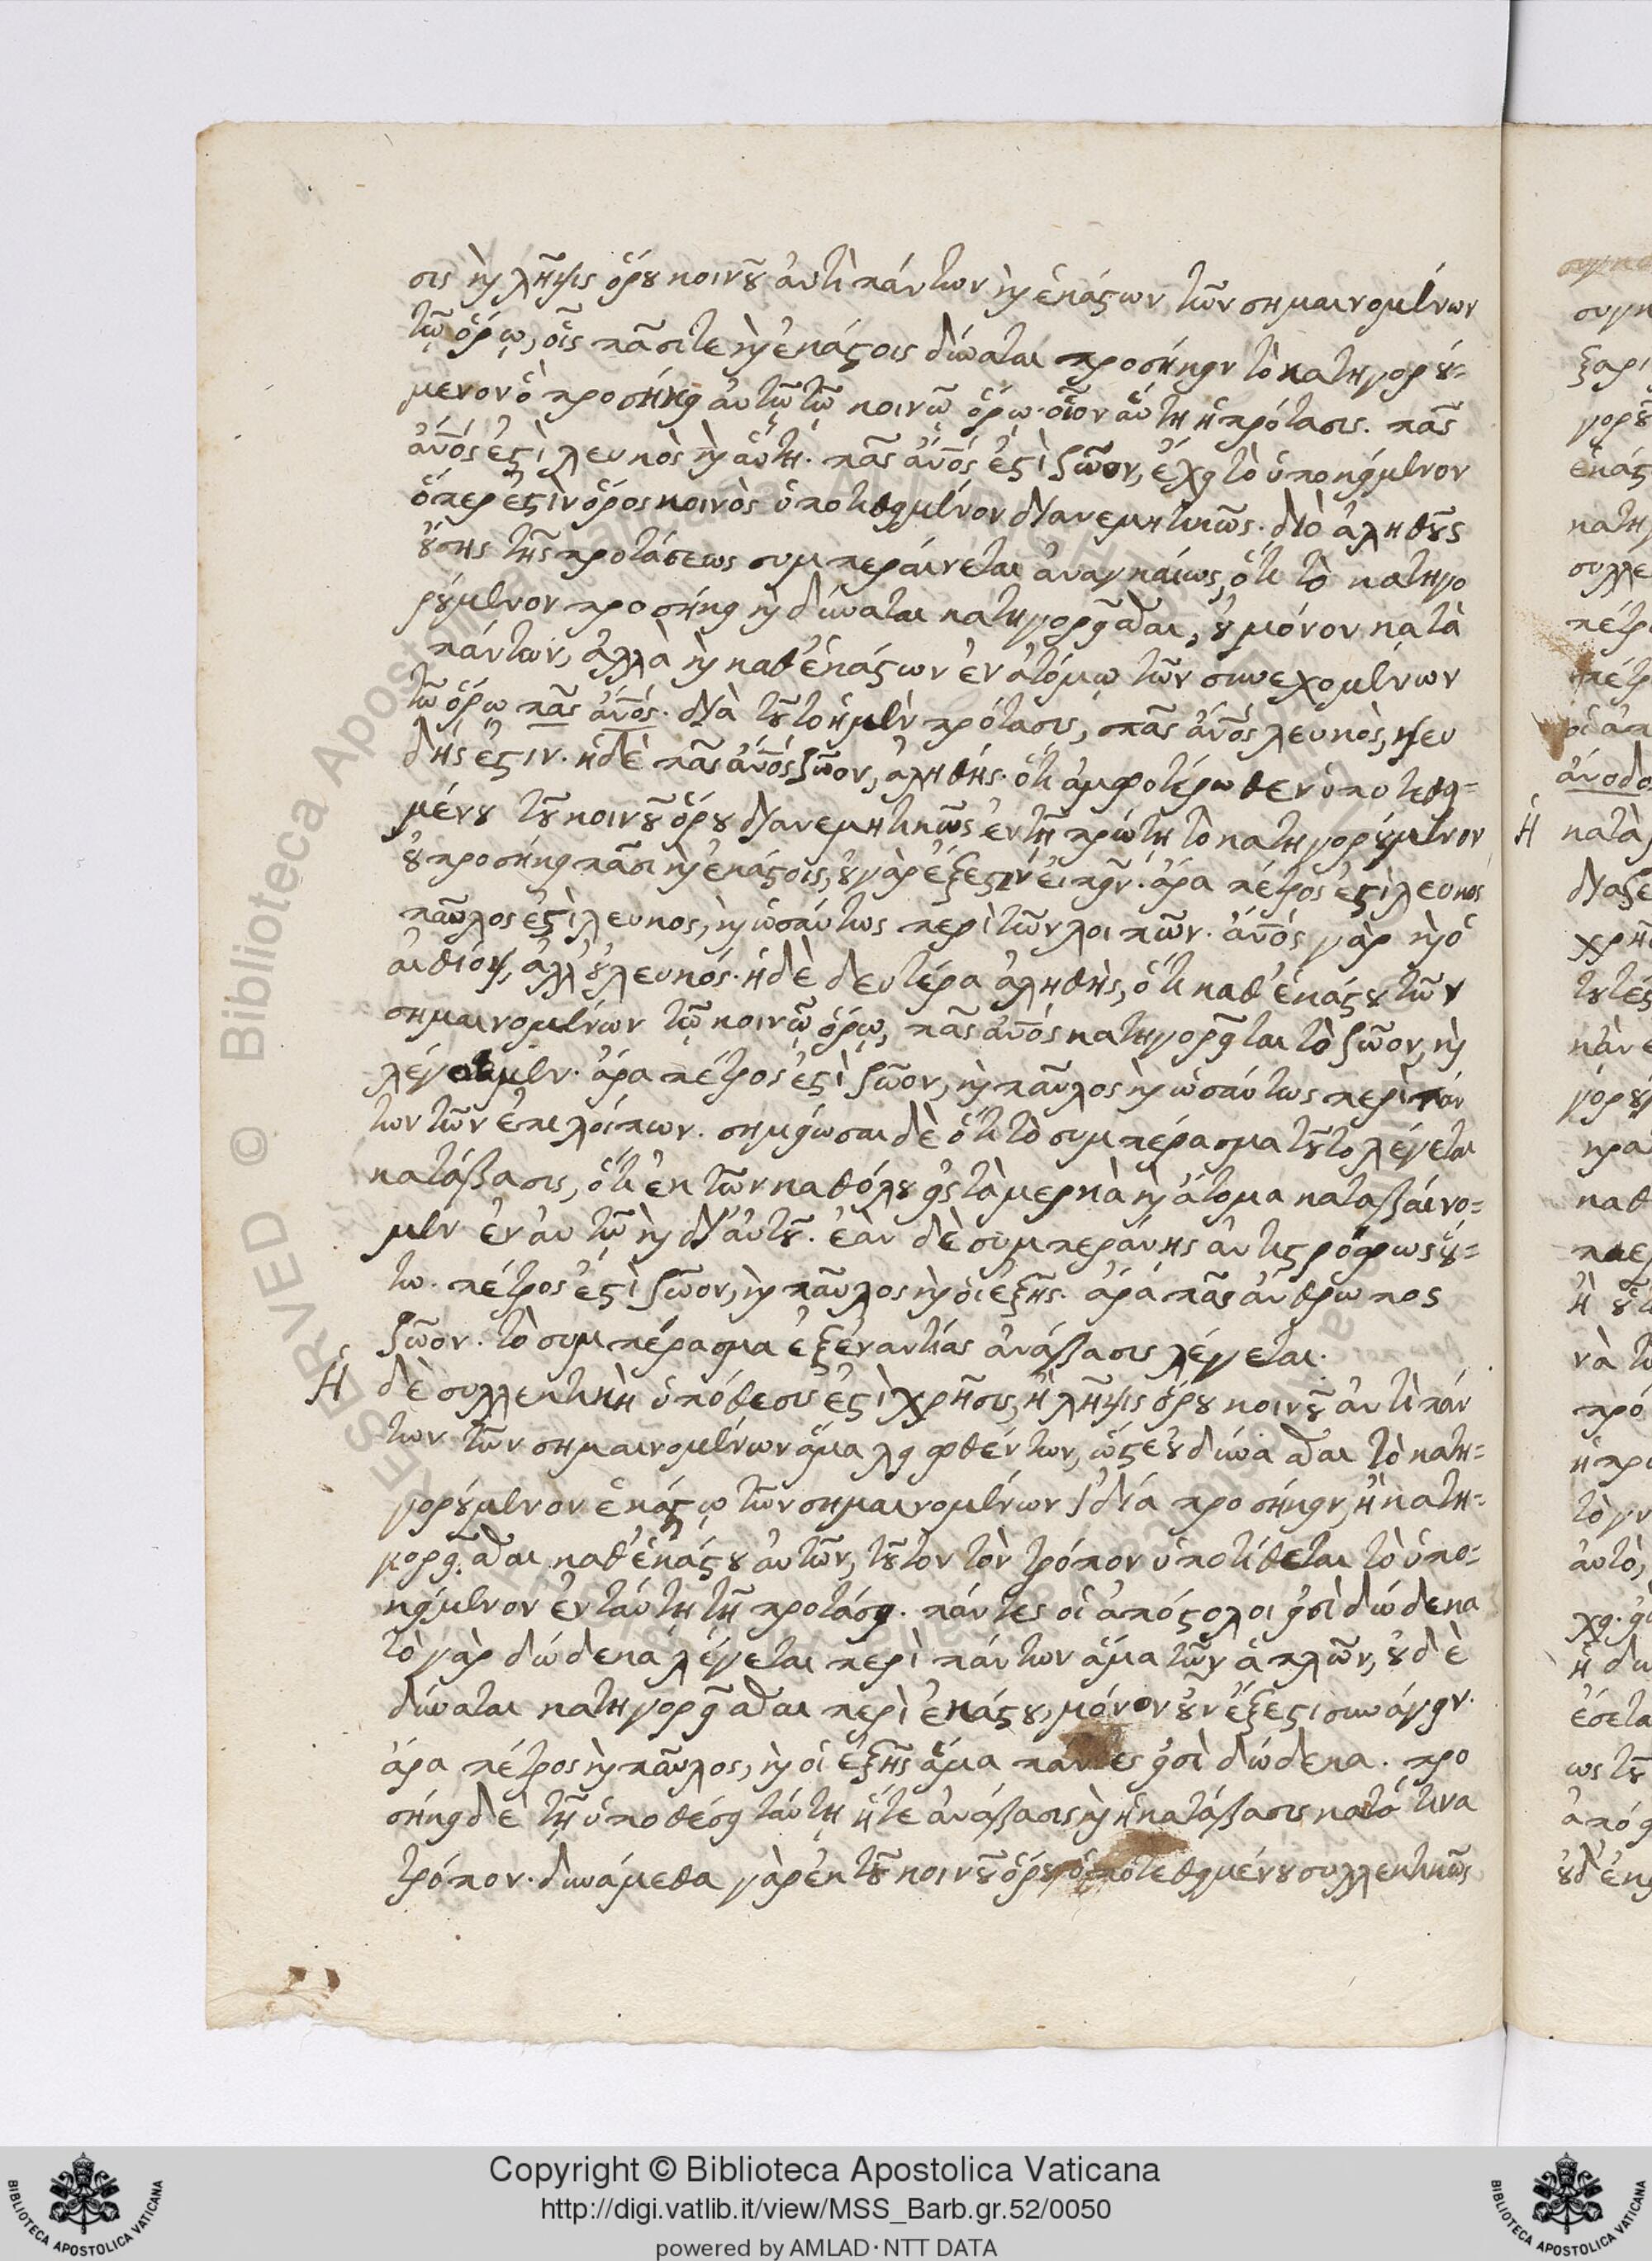 σις καὶ λῆψις ὅρου κοινοῦ ἀντὶ πάντων καὶ ἑκάστων τῶν σημαινομένων
τῷ ὅρῳ, οἷς πᾶσί τε καὶ ἑκάστοις δύναται προσήκειν τὸ κατηγορού=
μενον ὃ προσήκει αὐτῷ τῷ κοινῷ ὅρῳ· οἷον αὕτη ἡ πρότασις. πᾶς
ἄνος ἐστὶ λευκὸς καὶ αὕτη. πᾶς ἄνος ἐστὶ ζῶον, ἔχει τὸ ὑποκείμενον
ὅπερ ἐστὶν ὅρος κοινὸς ὑποτιθειμένον διανεμητικῶς. διὸ ἀληθοῦς
οὔσης τῆς προτάσεως συμπεραίνεται ἀναγκαίως, ὅτι τὸ κατηγο
ρούμενον προσήκει καὶ δύναται κατηγορεῖσθαι, οὐ μόνον κατὰ
πάντων, ἀλλὰ καὶ καθ' ἑκάστων ἐν ἀτόμῳ τῶν συνεχομένων
τῷ ὅρῳ πᾶς ἄνος. διὰ τοῦτο ἡ μὲν πρότασις, πᾶς ἄνος λευκὸς, ψευ
δής ἐστιν. ἡ δὲ πᾶς ἄνος ζῶον, ἀληθής. ὅτι ἀμφοτέρωθεν ὑποτεθει=
μένου τοῦ κοινοῦ ὅρου διανεμητικῶς ἐν τῇ πρώτῃ τὸ κατηγορούμενον
οὐ προσήκει πᾶσι καὶ ἑκάστοις, οὐ γὰρ ἔξεστιν εἰπεῖν. ἄρα πέτρος ἐστὶ λευκος
παῦλος ἐστὶ λευκος, καὶ ὡσαύτως περὶ τῶν λοιπῶν. ἄνος γὰρ καὶ ὁ
αἰθίοψ, ἀλλ' οὐ λευκός. ἡ δὲ δευτέρα ἀληθὴς, ὅτι καθ' ἑκάστου τῶν
σημαινομένων τῷ κοινῷ ὅρῳ, πᾶς ἄνος κατηγορεῖται τὸ ζῶον, καὶ
λέγομεν. ἄρα πέτρος ἐστὶ ζῶον, καὶ παῦλος καὶ ὡσαύτως περὶ πάν
των τῶν ἐπιλοίπων. σημείωσαι δὲ ὅτι τὸ συμπέρασμα τοῦτο λέγεται
κατάβασις, ὅτι ἐκ τῶν καθόλου εἰς τὰ μερικὰ καὶ ἄτομα καταβαίνο=
μεν ἐν αὐτῷ καὶ δι' αὐτοῦ. ἐὰν δὲ συμπεράνῃς ἀντιστρόφως οὕ=
τω. πέτρος ἐστὶ ζῶον, καὶ παῦλος καὶ οἱ ἐξῆς. ἄρα πᾶς ἄνθρωπος
ζῶον. τὸ συμπέρασμα ἐξεναντίας ἀνάβασις λέγεται.
Ἡ δὲ συλλεκτικὴ ὑπόθεσις ἐστὶ χρῆσις, ἢ λῆψις ὅρου κοινοῦ ἀντὶ πάν
των τῶν σημαινομένων ἅμα λειφθέντων, ὥστε οὐ δύνασθαι τὸ κατη=
γορούμενον ἑκάστῳ τῶν σημαινομένων ἰδία προσήκειν, ἢ κατη=
γορεῖσθαι καθ' ἑκάστου αὐτῶν, τοῦτον τὸν τρόπον ὑποτίθεται τὸ ὑπο=
κείμενον ἐν ταύτῃ τῇ προτάσει. πάντες οἱ ἀπόστολοι εἰσὶ δώδεκα
τὸ γὰρ δώδεκα λέγεται περὶ πάντων ἅμα τῶν ἁπλῶν, οὐδὲ
δύναται κατηγορεῖσθαι περὶ ἑκάστου, μόνον οὖν ἔξεστι συνάγειν.
ἄρα πέτρος καὶ παῦλος, καὶ οἱ ἐξῆς ἅμα πάντες εἰσὶ δώδεκα. προ
σήκει δὲ τῇ ὑποθέσει ταύτῃ ἥτε ἀνάβασις καὶ ἡ κατάβασις κατά τινα
τρόπον. δυνάμεθα γὰρ ἐκ τοῦ κοινοῦ ὅρου ὑποτεθειμένου συλλεκτικῶς
Copyright © Biblioteca Apostolica Vaticana
http://digi.vatlib.it/view/MSS_Barb.gr.52/0050
powered by AMLAD·NTT DATA